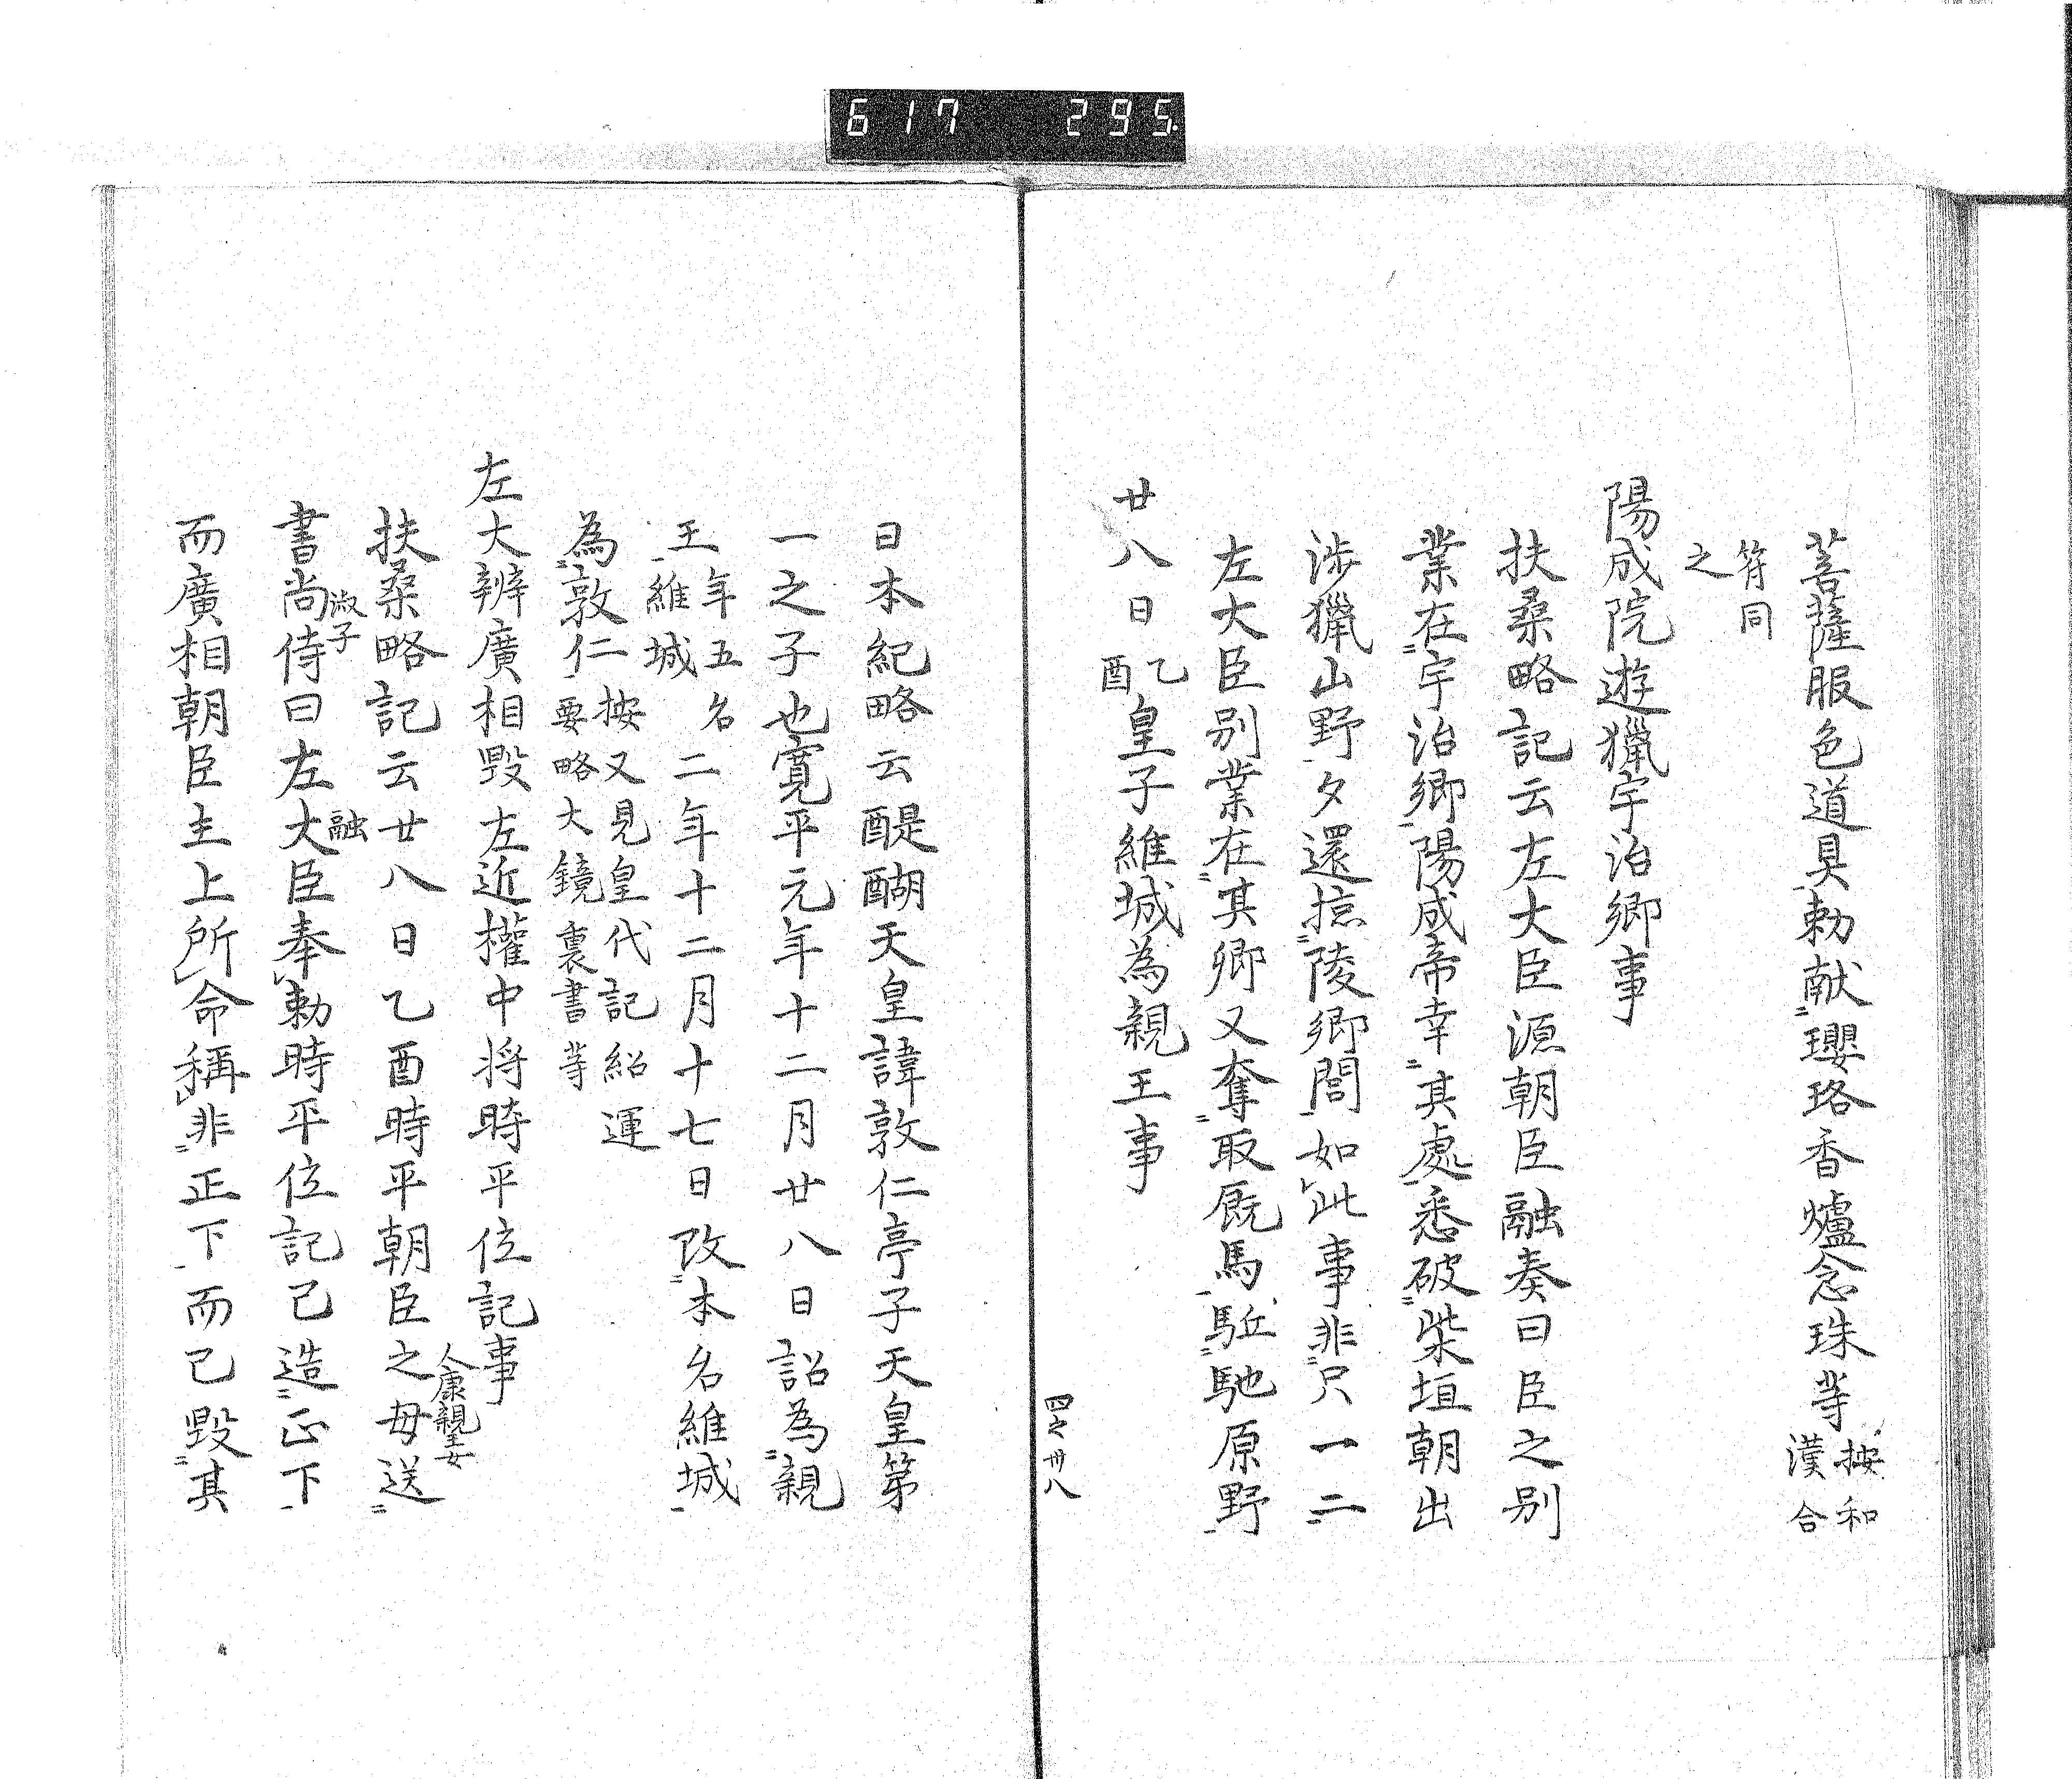 617 295
菩薩服色道具勅献瓔珞香爐念珠等按和漢合
符同之
陽成院遊獵宇治鄉事
扶桑略記云左大臣源朝臣融奏曰臣之別
業在宇治鄉陽成帝幸其處悉破柴垣朝出
渉獵山野夕還掠陵鄉閭如此事非只一二
左大臣別業在其鄉又奪取厩馬駈馳原野
廿八日乙酉皇子維城為親王事
四之卅八
日本紀略云醍醐天皇諱敦仁亭子天皇第
一之子也寛平元年十二月廿八日詔為親
王年五名維城二年十二月十七日改本名維城
為敦仁按又見皇代記紹運要略大鏡裏書等
左大辨廣相毀左近權中将時平位記事
扶桑略記云廿八日乙酉時平朝臣之母人康親王女送
書尚侍淑子曰左大臣融奉勅時平位記已造正下
而廣相朝臣主上所命稱非正下而已毀其